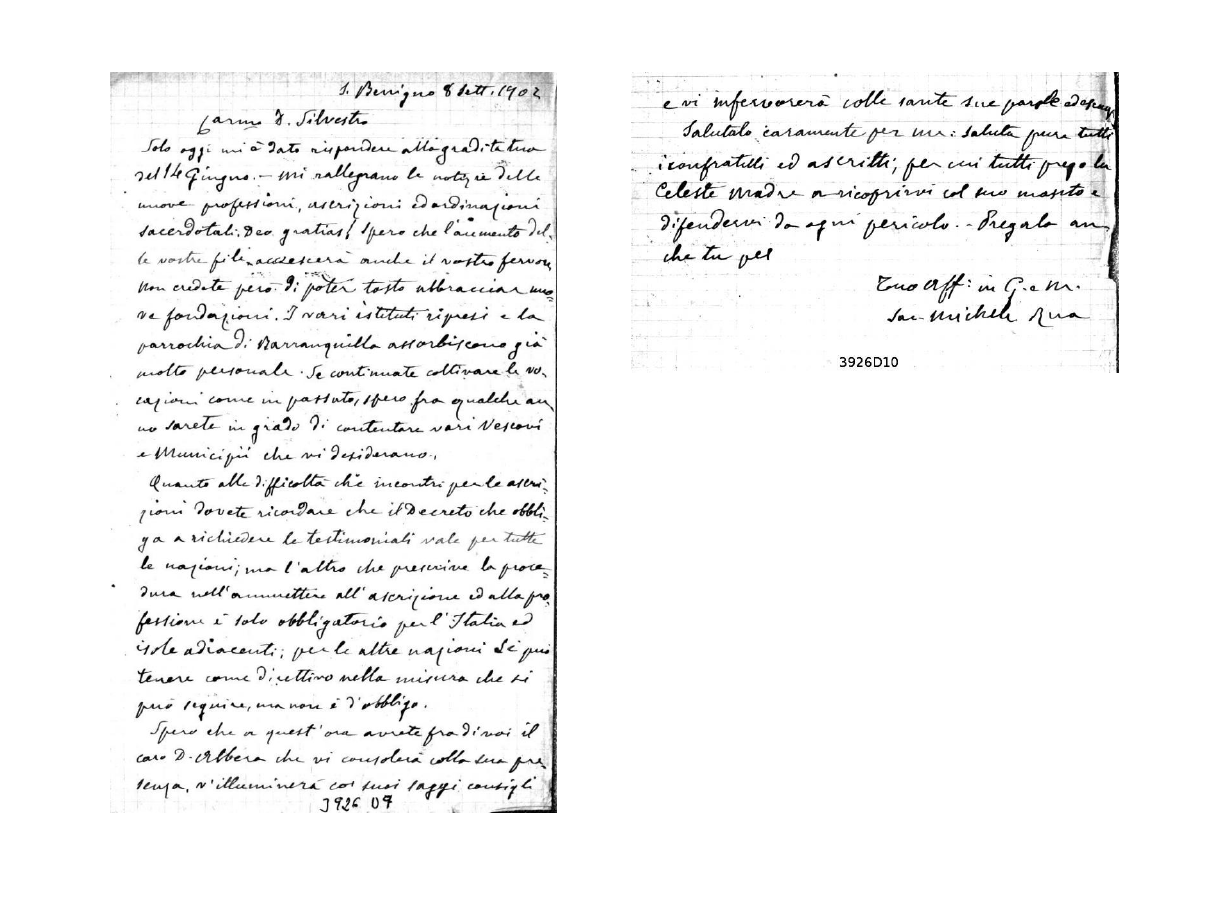 S. Benigno 8 Sett. 1902
Carmo D. Silvestro
Solo oggi mi è dato rispondere alla gradite tua
del 14 Giugno. - Mi rallegrano le notizie delle
nuove professioni, ascrizioni ed ordinazioni
sacerdotali. Deo gratias! Spero che l'aumento del-
le vostre file accrescerà anche il vostro fervore
Non credete però di poter tosto abbracciar nuo-
ve fondazioni. I vari istituti ripresi e la
parrochia di Barranquilla assorbiscono già
molto personale. Se continuate coltivare le vo-
cazioni come in passato, spero fra qualche an
no sarete in grado di contentare vari Vescovi
e Municipii che vi desiderano.
Quanto alle difficoltà che incontri per le ascri-
zioni dovete ricordare che il Decreto che obbli-
ga a richiedere le testimoniali vale per tutte
le nazioni; ma l'altro che prescrive la proce-
dura nell'ammettere all'ascrizione ed alla pro-
fessione è solo obbligatorio per l'Italia ed
isole adiacenti; per le altre nazioni si può
tenere come direttivo nella misura che si
può seguire, ma non è d'obbligo.
Spero che a quest'ora avrete fra di voi il
caro D. Albera che vi consolerà colla sua pre
senza, v'illuminerà coi suoi saggi consigli
3926 D9
e vi infervorerà colle sante sue parole ed esempi
Salutalo caramente per me: saluta pure tutti
i confratelli ed ascritti; per cui tutti prego la
Celeste Madre a ricoprirvi col suo manto e
difendervi da ogni pericolo. - Pregala an
che tu pel
Tuo Aff: in G. e M.
Sac. Michele Rua
3926D10